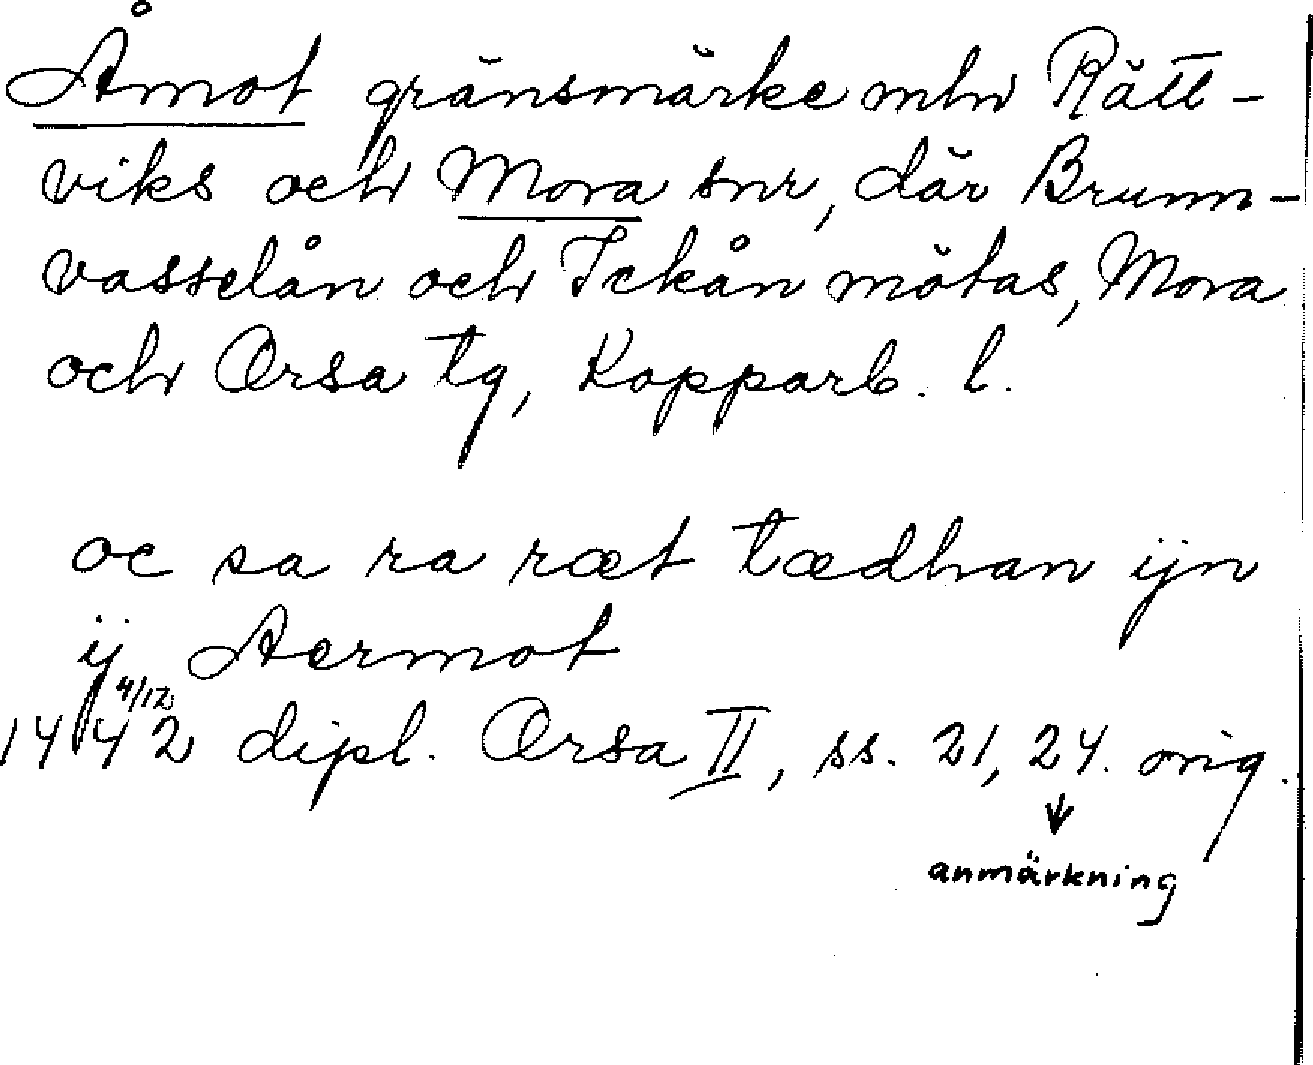 Åmot gränsmärke mln Rätt-
viks och Mora snr, där Brunn-
vasselån och Ickån mötas, Mora
och Orsa tg, Kopparb. l.
oc sa ra ræt tædhan ijn
ij Aermot
1442 4/12 dipl. Orsa II, ss. 21, 24. orig.
↓
anmärkning